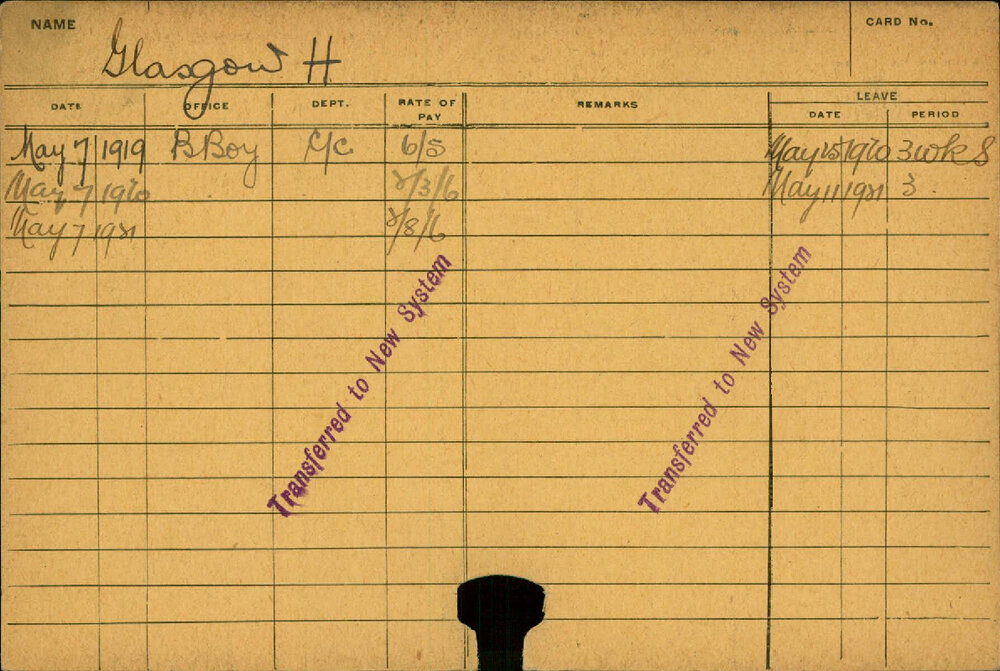 NAME Glasgow H CARD No.
DATE OFFICE DEPT. RATE OF PAY REMARKS LEAVE DATE PERIOD
May 7 1919 B Boy C/C 6/5 May 25 1920 3 wks
May 7 1920 7/3/6 May 11 1921 3
May 7 1921 7/8/6
Transferred to New System
Transferred to New System